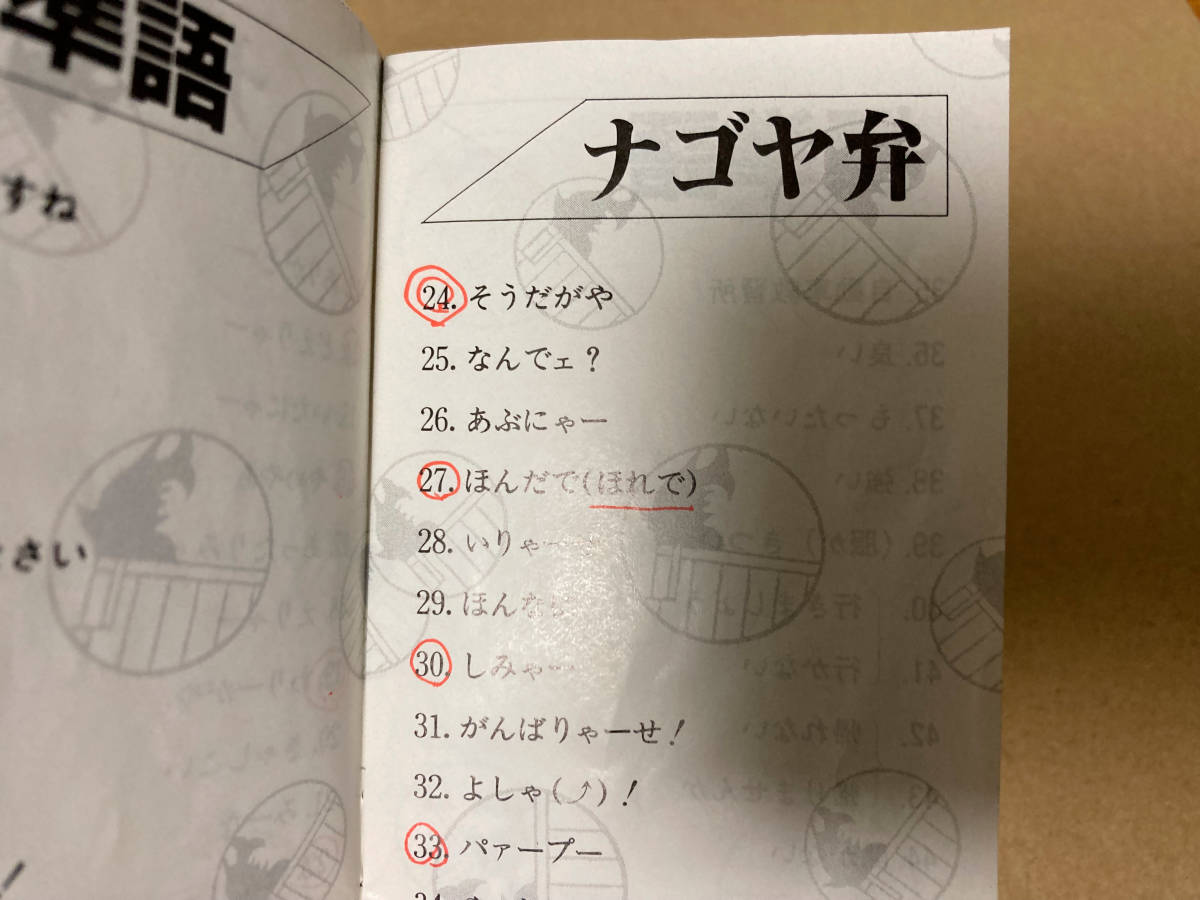 準語
すね
さい
！
ナゴヤ弁
24. そうだがや
25. なんでェ？
26. あぶにゃー
27. ほんだで(ほれで)
28. いりゃー
29. ほんな
30. しみゃー
31. がんばりゃーせ！
32. よしゃ(⤴)！
33. パァープー
34.